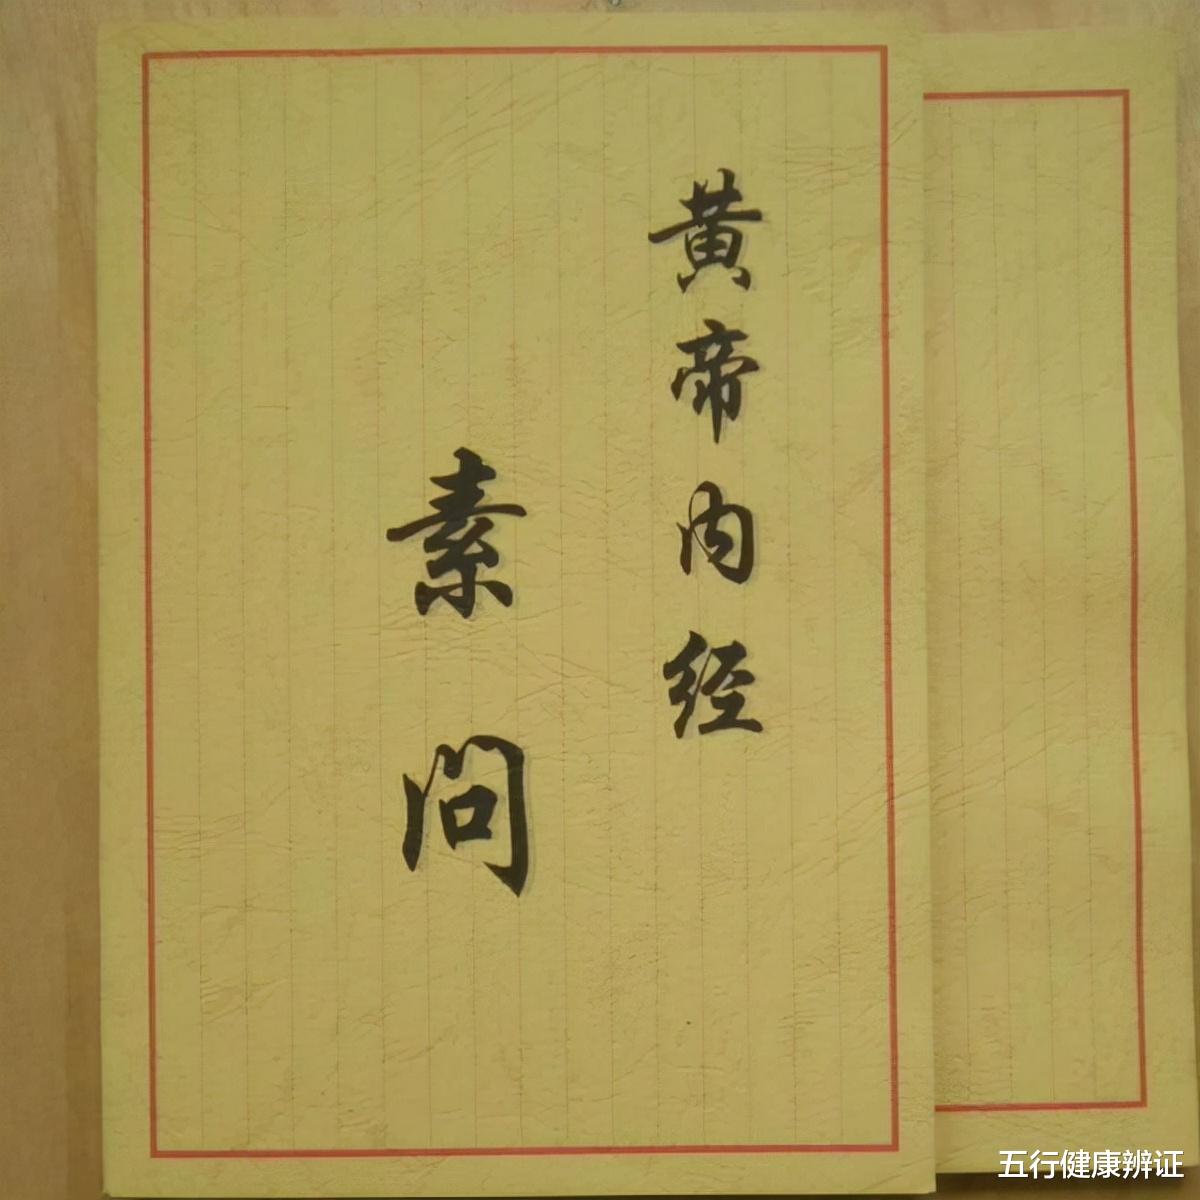 黄帝内经
素问
五行健康辨证